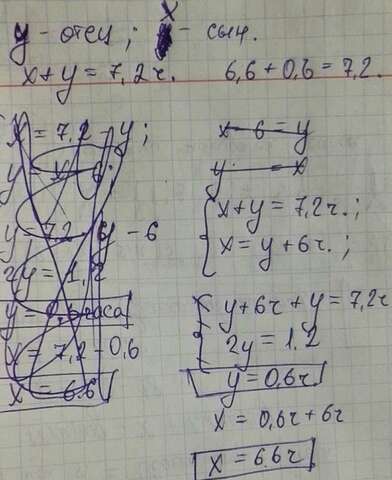 y - отец; x - сын.
x+y = 7,2 ч. 6,6+0,6 = 7,2.
x = 7,2 - y;
2y = 1,2
y = 0,6 часа
x = 7,2 - 0,6
x = 6.6
x - 6 = y
y = x
x+y = 7,2ч.;
x = y+6ч.;
y+6ч+y = 7,2ч
2y = 1,2
y = 0,6ч
x = 0,6ч+6ч
x = 6.6ч